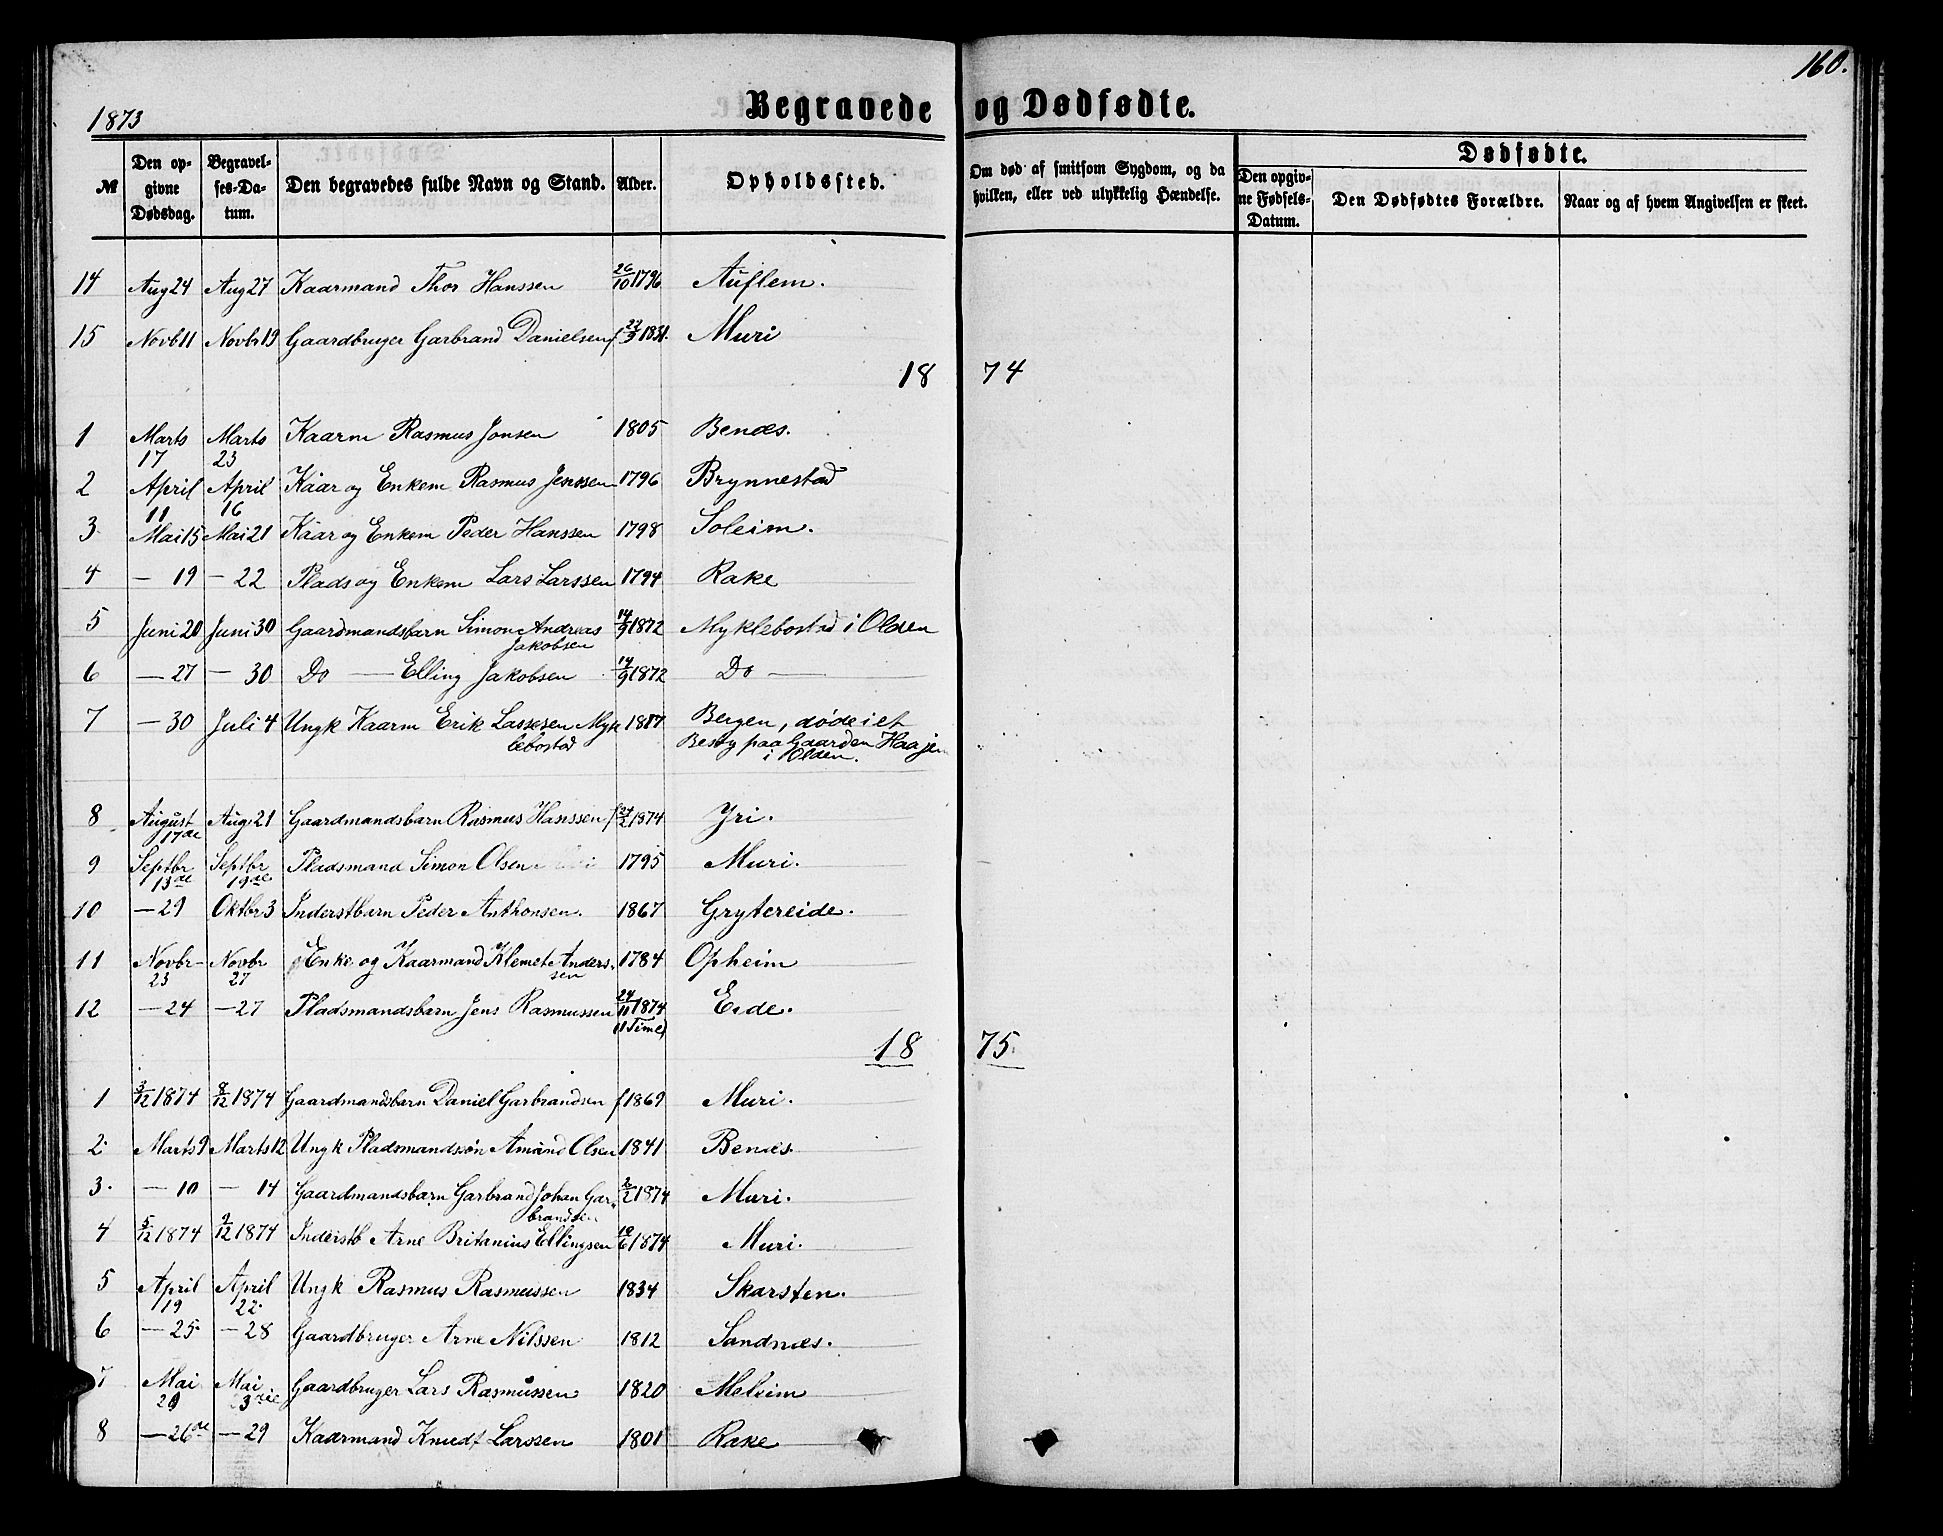 160.
1873
Begravede og Dødfødte.
№ | Den opgivne Dødsdag. | Begravelses-Datum. | Den begravedes fulde Navn og Stand. | Alder. | Opholdssted. | Om død af smitsom Sygdom, og da hvilken, eller ved ulykkelig Hændelse. | Dødfødte. | Den opgivne Fødsels-Datum. | Den Dødfødtes Forældre. | Naar og af hvem Angivelsen er skeet.
14 Aug 24 Aug 27 Kaarmand Thor Hanssen 26/10 1796 Auflem.
15 Novb 11 Novbr 19 Gaardbruger Garbrand Danielsen f 1831. Muri
18 74
1 Marts 17 Marts 23 Kaarm Rasmus Jonsen 1805 Benæs.
2 April 11 April 16 Kaar og Enkem Rasmus Jenssen 1796 Brynnestad
3. Mai 15 Mai 21 Kaar og Enkem Peder Hanssen 1798 Soleim.
4 — 19 — 22 Plads og Enkem Lars Larssen 1794 Rake
5 Juni 20 Juni 30 Gaardmandsbarn Simon Andreas Jakobsen 14/9 1872 Myklebostad i Olden
6 — 27 — 30 Do — Elling Jakobsen 14/9 1872 Do —
7 — 30 Juli 4 Ungk Kaarm Erik Lassesen Myklebostad Bergen, døde i et
Besøg paa Gaarden Haajen
i Olden.
8 August 17de Aug 21 Gaardmandsbarn Rasmus Hanssen f 24/2 1874 Yri.
9 Septbr 13de Septbr 19de Pladsmand Simon Olsen 1795 Muri.
10 — 29 Oktbr 3 Inderstbarn Peder Anthonsen. 1867 Grytereide.
11 Novbr 23 Novbr 27 Enke og Kaarmand Klemet Anderssen 1784 Opheim
12 — 24 — 27 Pladsmandsbarn Jens Rasmussen 24/11 1874 11 Timer Eide.
18 75.
1 3/12 1874 8/12 1874 Gaardmandsbarn Daniel Garbrandsen f 1869 Muri.
2. Marts 9 Marts 12 Ungk Pladsmandssøn Amund Olsen 1841 Benæs.
3. — 10 — 14 Gaardmandsbarn Garbrand Johan Garbrandsen 2/2 1874 Muri.
4 5/12 1874 9/12 1874 Inderstb Arne Britanius Ellingsen 10/6 1874 Muri.
5 April 19 April 22. Ungk Rasmus Rasmussen 1834 Skarsten.
6 — 25. — 28 Gaardbruger Arne Nilssen 1812 Sandnæs.
7 Mai 20 Mai Gaardbruger Lars Rasmussen 1820 Meleim
8 — 26de — 29 Kaarmand Knudt Larssen 1801 Rake